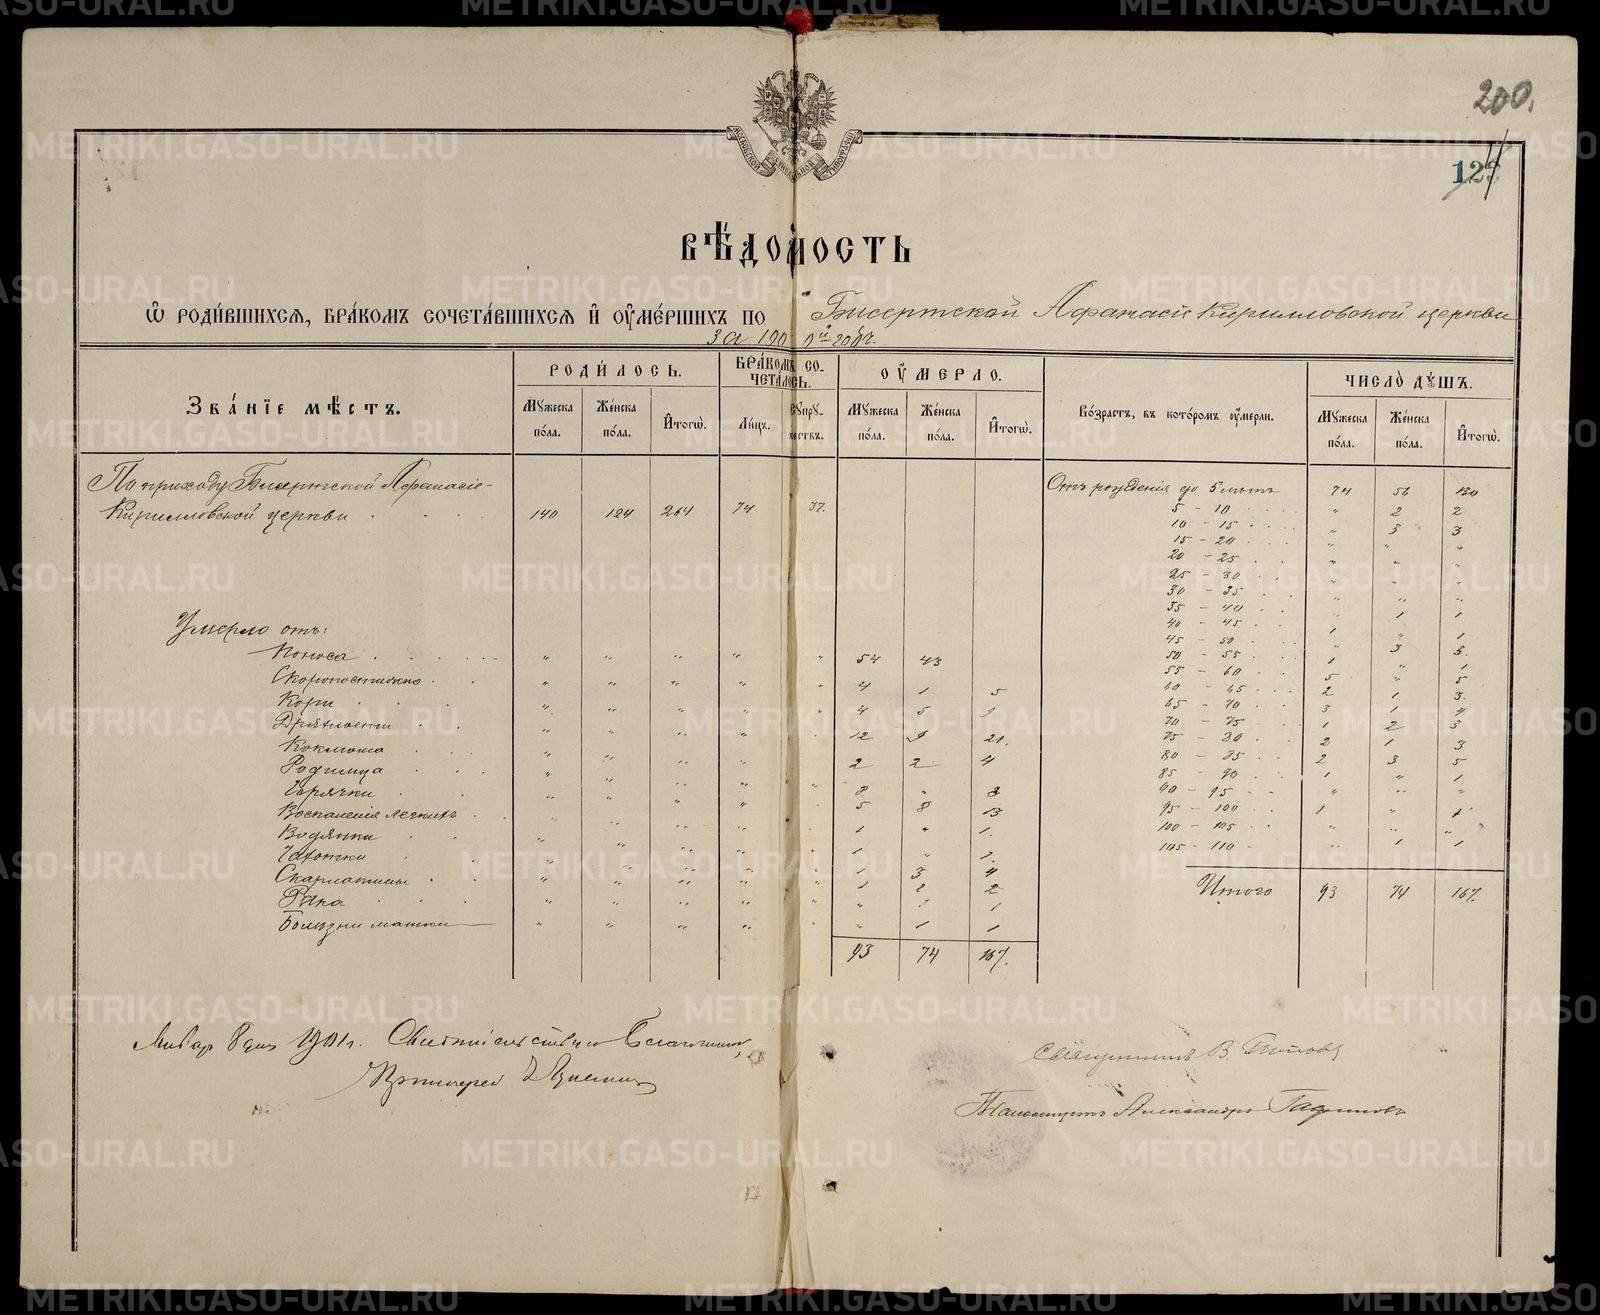 200.
123
МОСКОВСКОЙ СѴНОДАЛЬНОЙ ТИПОГРАФІИ
ВѢДОМОСТЬ
Ѡ РОДИВШИХСЯ, БРАКОМЪ СОЧЕТАВШИХСЯ И ОУМЕРШИХЪ ПО Бисертской Афанасіе Кирилловской церкви
За 1900й годъ.
ЗВАНІЕ МѢСТЪ.
РОДИЛОСЬ.
Мужеска пола.
Женска пола.
Итогѡ.
БРАКОМЪ СОЧЕТАЛОСЬ.
Лицъ.
Супружествъ.
ОУМЕРЛО.
Мужеска пола.
Женска пола.
Итогѡ.
Возрастъ, въ которомъ оумерли.
ЧИСЛО ДУШЪ.
Мужеска пола.
Женска пола.
Итогѡ.
По приходу Бисертской Афанасіе-
Кирилловской церкви 140 124 264 74 37.
Умерло отъ:
Поноса " " " " " 54 43
Скоропостижно " " " " " 4 1 5
Кори " " " " " 4 5 9
Дряхлости " " " " " 12 9 21.
Коклюша 2 2 4
Родимца 8 " 8
Горячки 5 8 13
Воспаленія легкихъ 1 " 1.
Водянки 1 " 1.
Чахотки 1 3 4
Скарлатины 2
Рака " 1
Болѣзни матки " 1 1
93 74 167.
Отъ рожденія до 5 лѣтъ 74 56 130
5 - 10 " 2 2
10 - 15 " 3 3
15 - 20 " " "
20 - 25 " " "
25 - 30 " " "
30 - 35 " " "
35 - 40 " 1 1
40 - 45 1 " 1
45 - 50 " 3 3.
50 - 55 1 " 1
55 - 60 5 " 5
60 - 65 2 1 3.
65 - 70 3 1 4
70 - 75 1 2 3
75 - 80 2 1 3
80 - 85 2 3 5
85 - 90 1 " 1
90 - 95 " " "
95 - 100 1 " 1
100 - 105 " " "
105 - 110 " 1 1
Итого 93 74 167.
Январ 8 дня 1901 г. Свидѣтельствую Благочинный
Протоіерей
Священникъ В. Поповъ
Псаломщикъ Александръ
METRIKI.GASO-URAL.RU